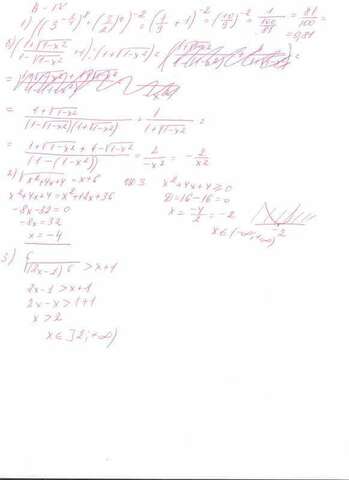 A-IV
1) ((3^{-1/4})^8 + (3/2)^0)^{-2} = (1/9 + 1)^{-2} = (10/9)^{-2} = 1/(100/81) = 81/100 =
= 0,81
= (1+√1-x²)/((1-√1-x²)(1+√1-x²)) + 1/(1+√1-x²) =
= (1+√1-x² + 1-√1-x²)/(1-(1-x²)) = 2/-x² = -2/x²
2) √x²+4x+4 = x+6 x²+4x+4 ≥ 0
x²+4x+4 = x²+12x+36 D=16-16=0
-8x-32=0 x = -4/2 = -2
-8x=32 -2
x=-4 x∈(-∞;+∞)
3) ⁶√(2x-1)⁶ > x+1
2x-1 > x+1
2x-x > 1+1
x > 2
x∈]2;+∞)